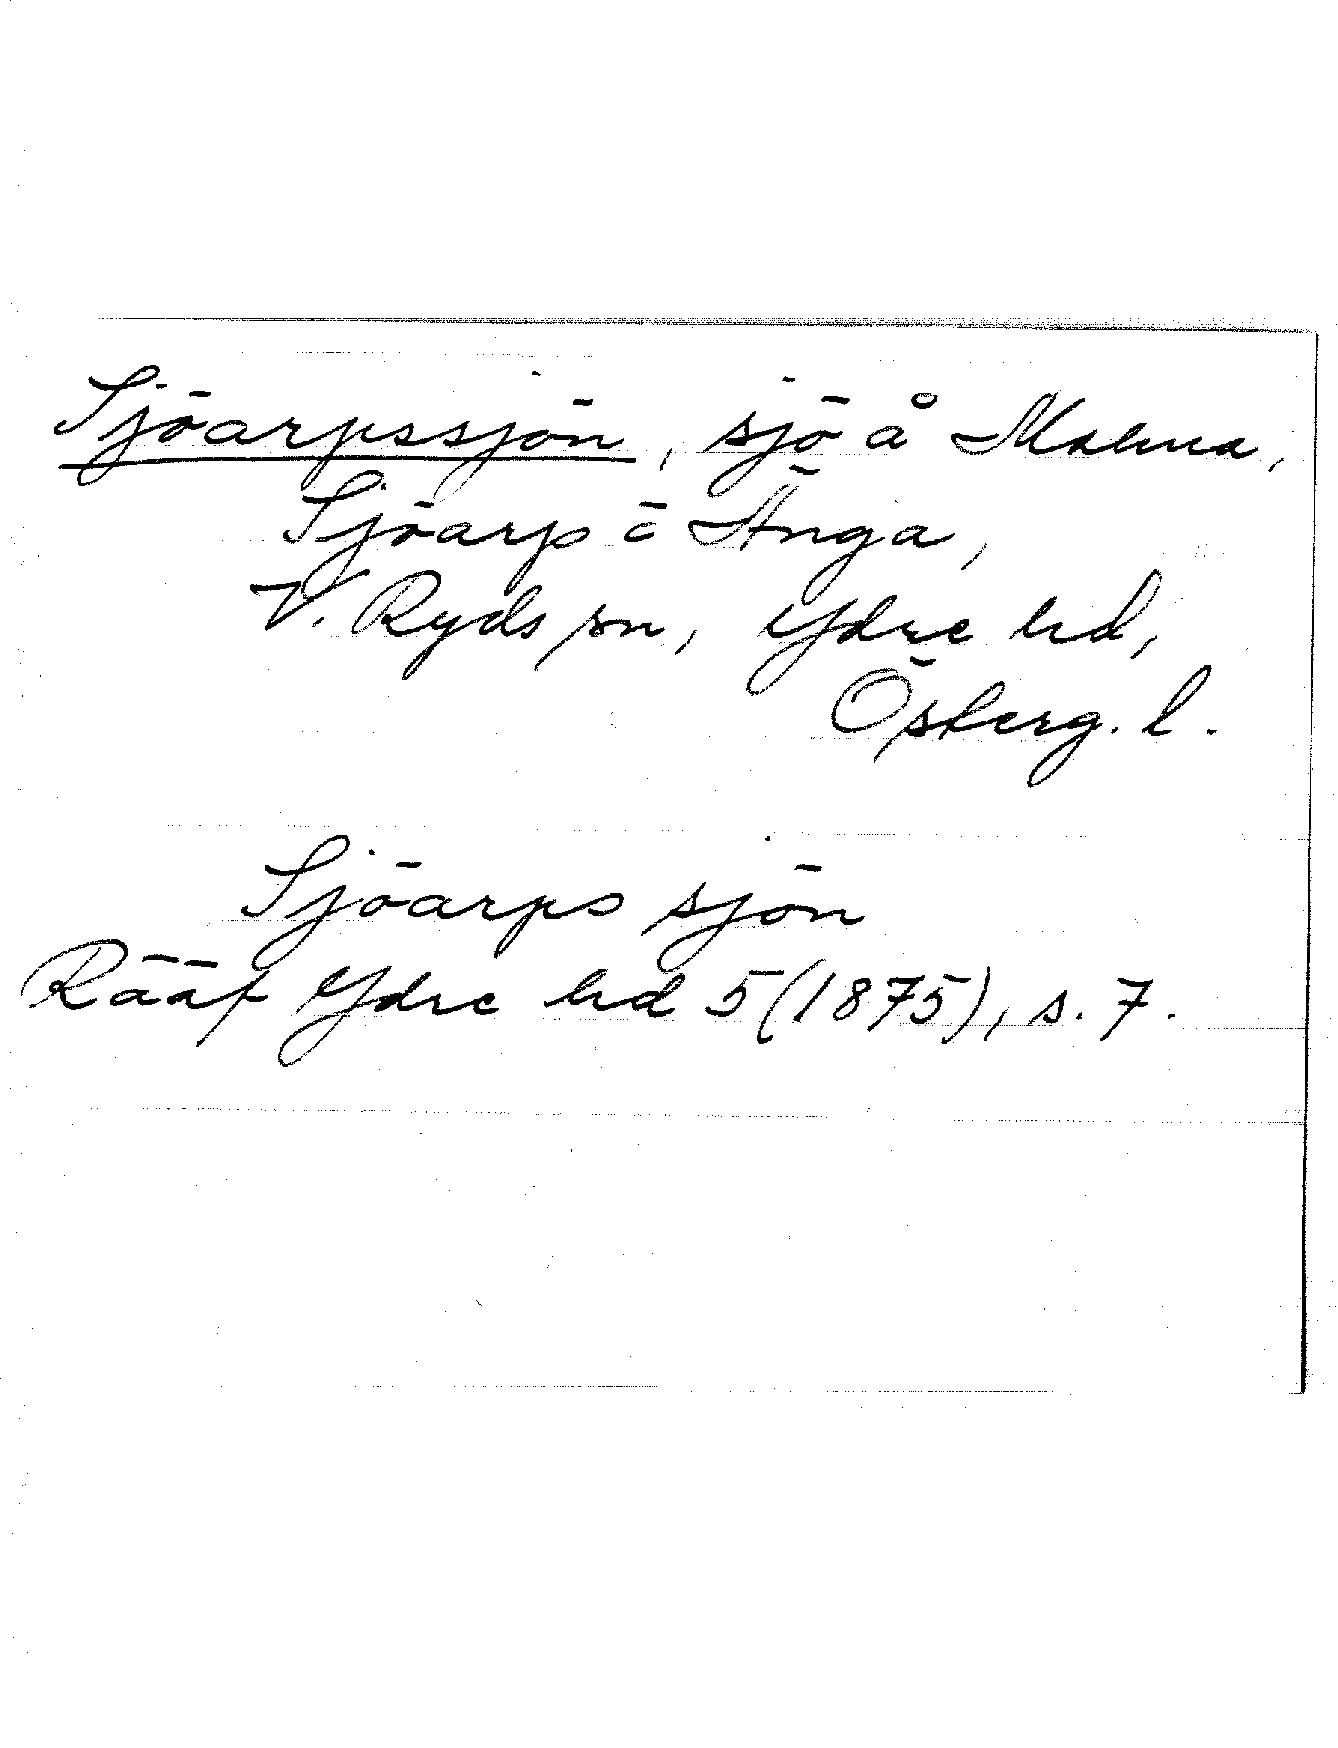 Sjöarpssjön, sjö å Malma,
Sjöarp o Änga,
V. Ryds sn, Ydre hd,
Österg. l.
Sjöarps sjön
Rääf Ydre hd 5 (1875), s. 7.